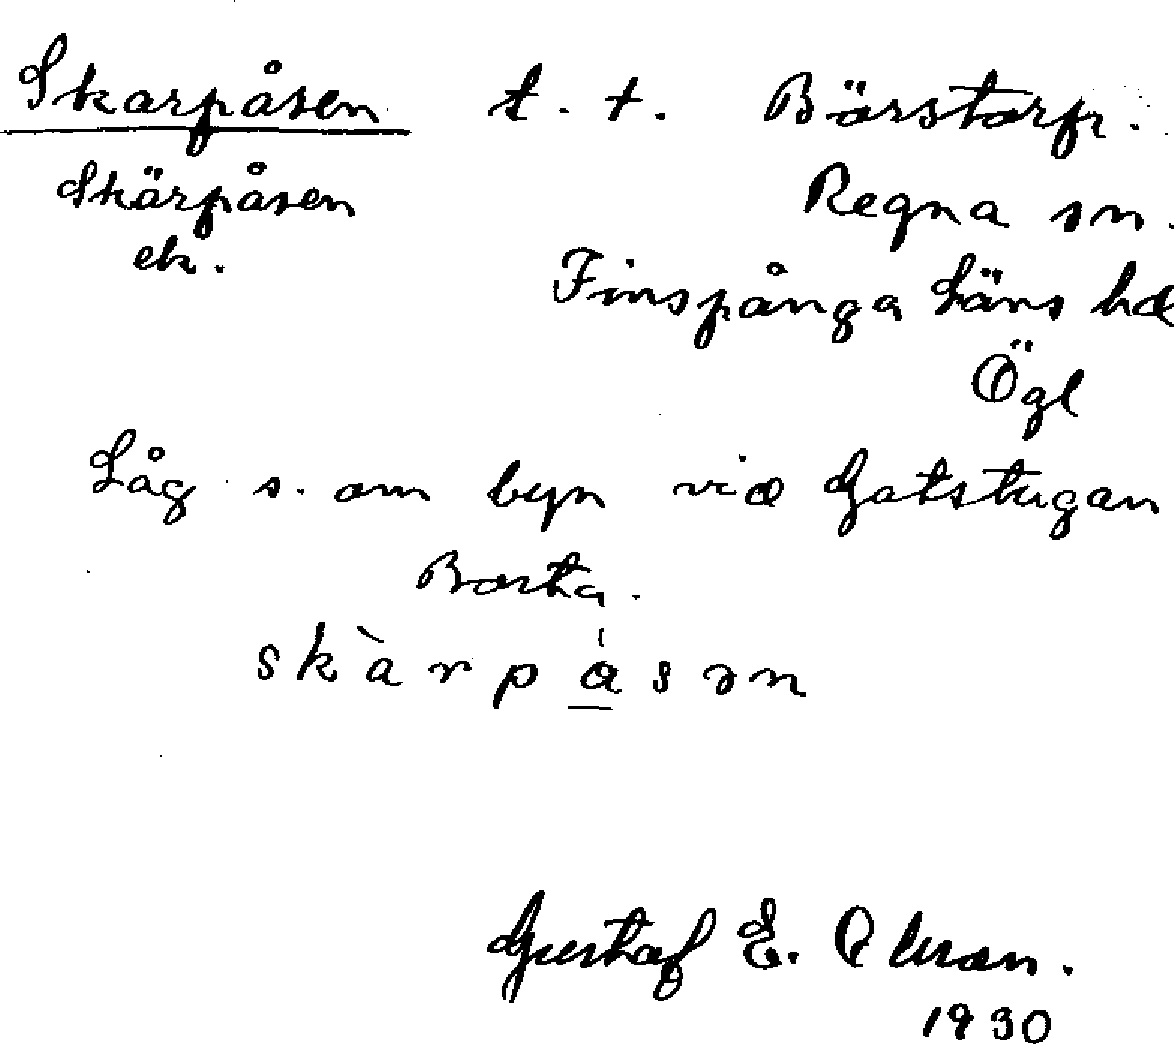 Skarpåsen t. t. Börstorp.
Skärpåsen Regna sn.
ek. Finspånga läns hd
Ögl
Låg s. om byn vid Gatstugan
Borta.
skàrpåsən
Gustaf E.
1930